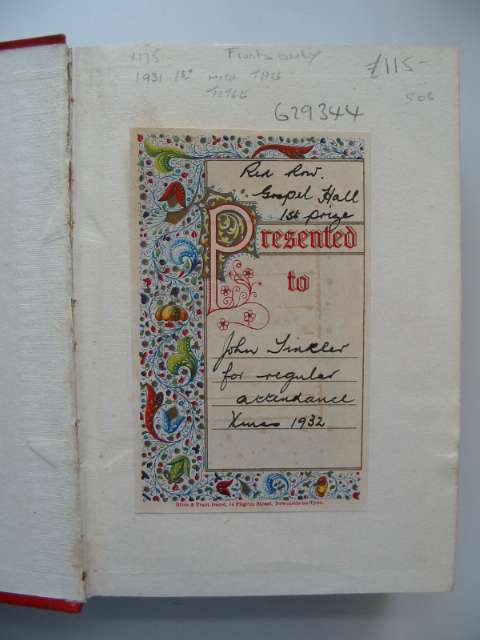 £115-
1931 1st WITH THIS
TITLE
506
629344
Red Row.
Gospel Hall
1st prize
Presented
to
John Tinkler
for regular
attendance
Xmas 1932
Bible & Tract Depot, 14 Pilgrim Street, Newcastle-on-Tyne.